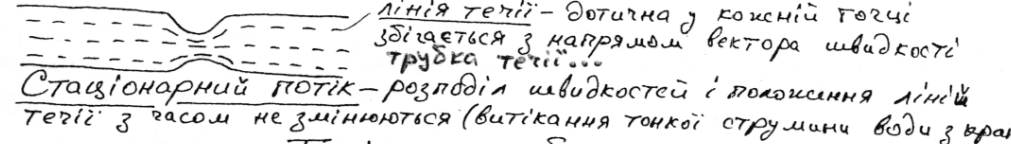 лінія течії – дотична у кожній точці
збігається з напрямом вектора швидкості
трубка течії...
Стаціонарний потік – розподіл швидкостей і положення ліній
течії з часом не змінюються (витікання тонкої струмини води з кран